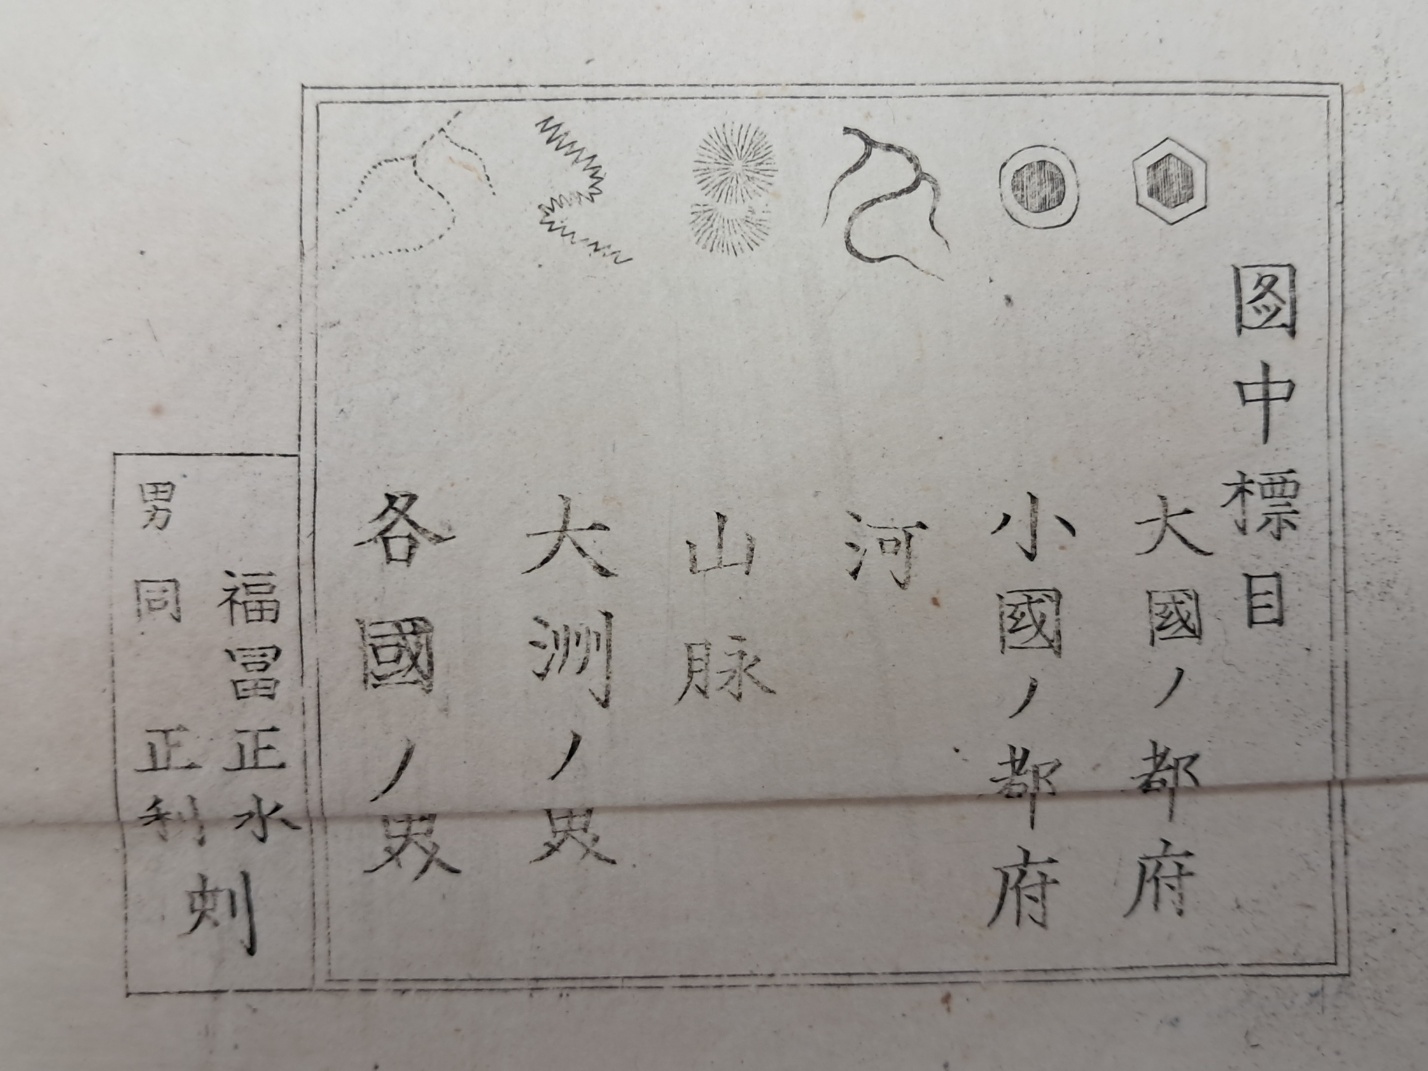 图中標目
大國ノ都府
小國ノ都府
河
山脉
大洲ノ界
各國ノ界
福冨正水
男 同 正利
刻